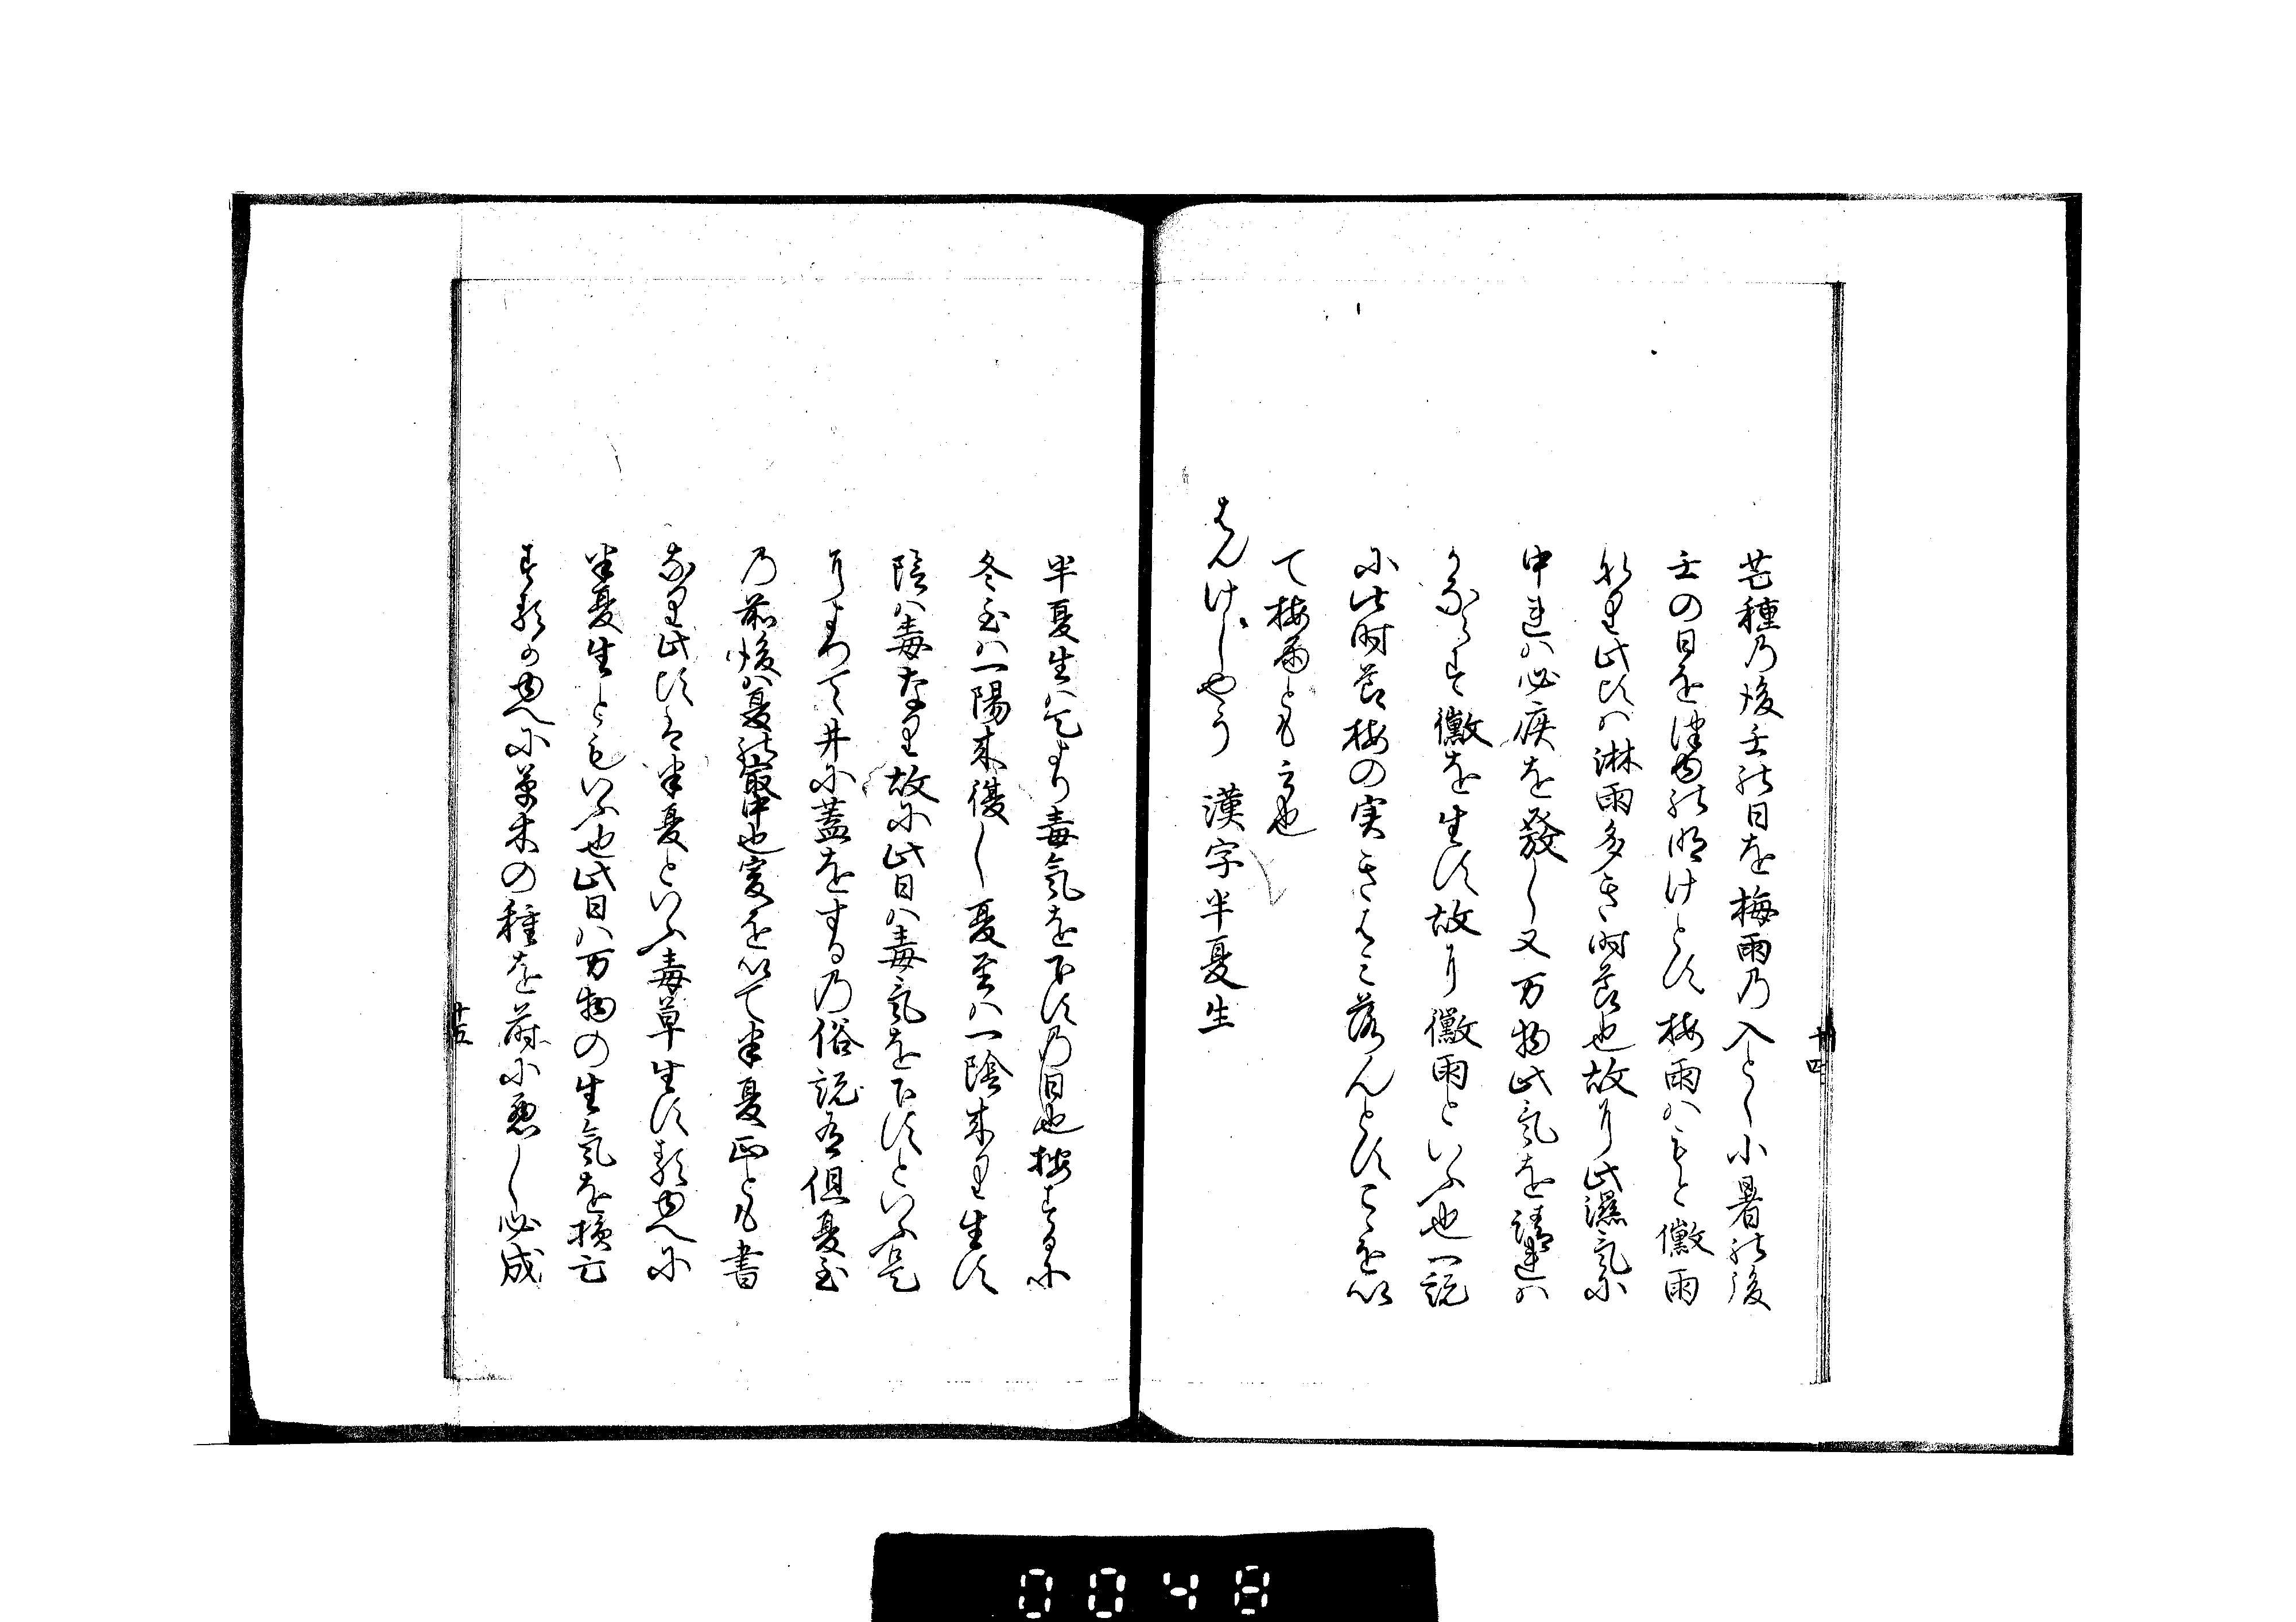 芒種乃後壬の日を梅雨乃入とし小暑の後
壬の日を津由の明けとす梅雨ハもと黴雨
なり此頃ハ淋雨多き時節也故に此濕氣に
中連ハ必疾を發し又万物此氣を請連ハ
かならす黴を生す故に黴雨といふ也一説
に此時節梅の実きはミ落んとすこゝを以
て梅雨とも言也
はんげしやう 漢字半夏生
半夏生ハ天より毒気を下す乃日也按するに
冬至ハ一陽来復し夏至ハ一陰来り生す
陰ハ毒なり故に此日ハ毒気を下すといふ是
によつて井に蓋をする乃俗説有但夏至
乃前後ハ夏の最中也爰を以て半夏正とも書
なり此頃は半夏といふ毒草生す類ゆへに
半夏生ともいふ也此日ハ万物の生気を損亡
する類のゆへに草木の種を蒔に悪し必成
廿四
廿五
0048